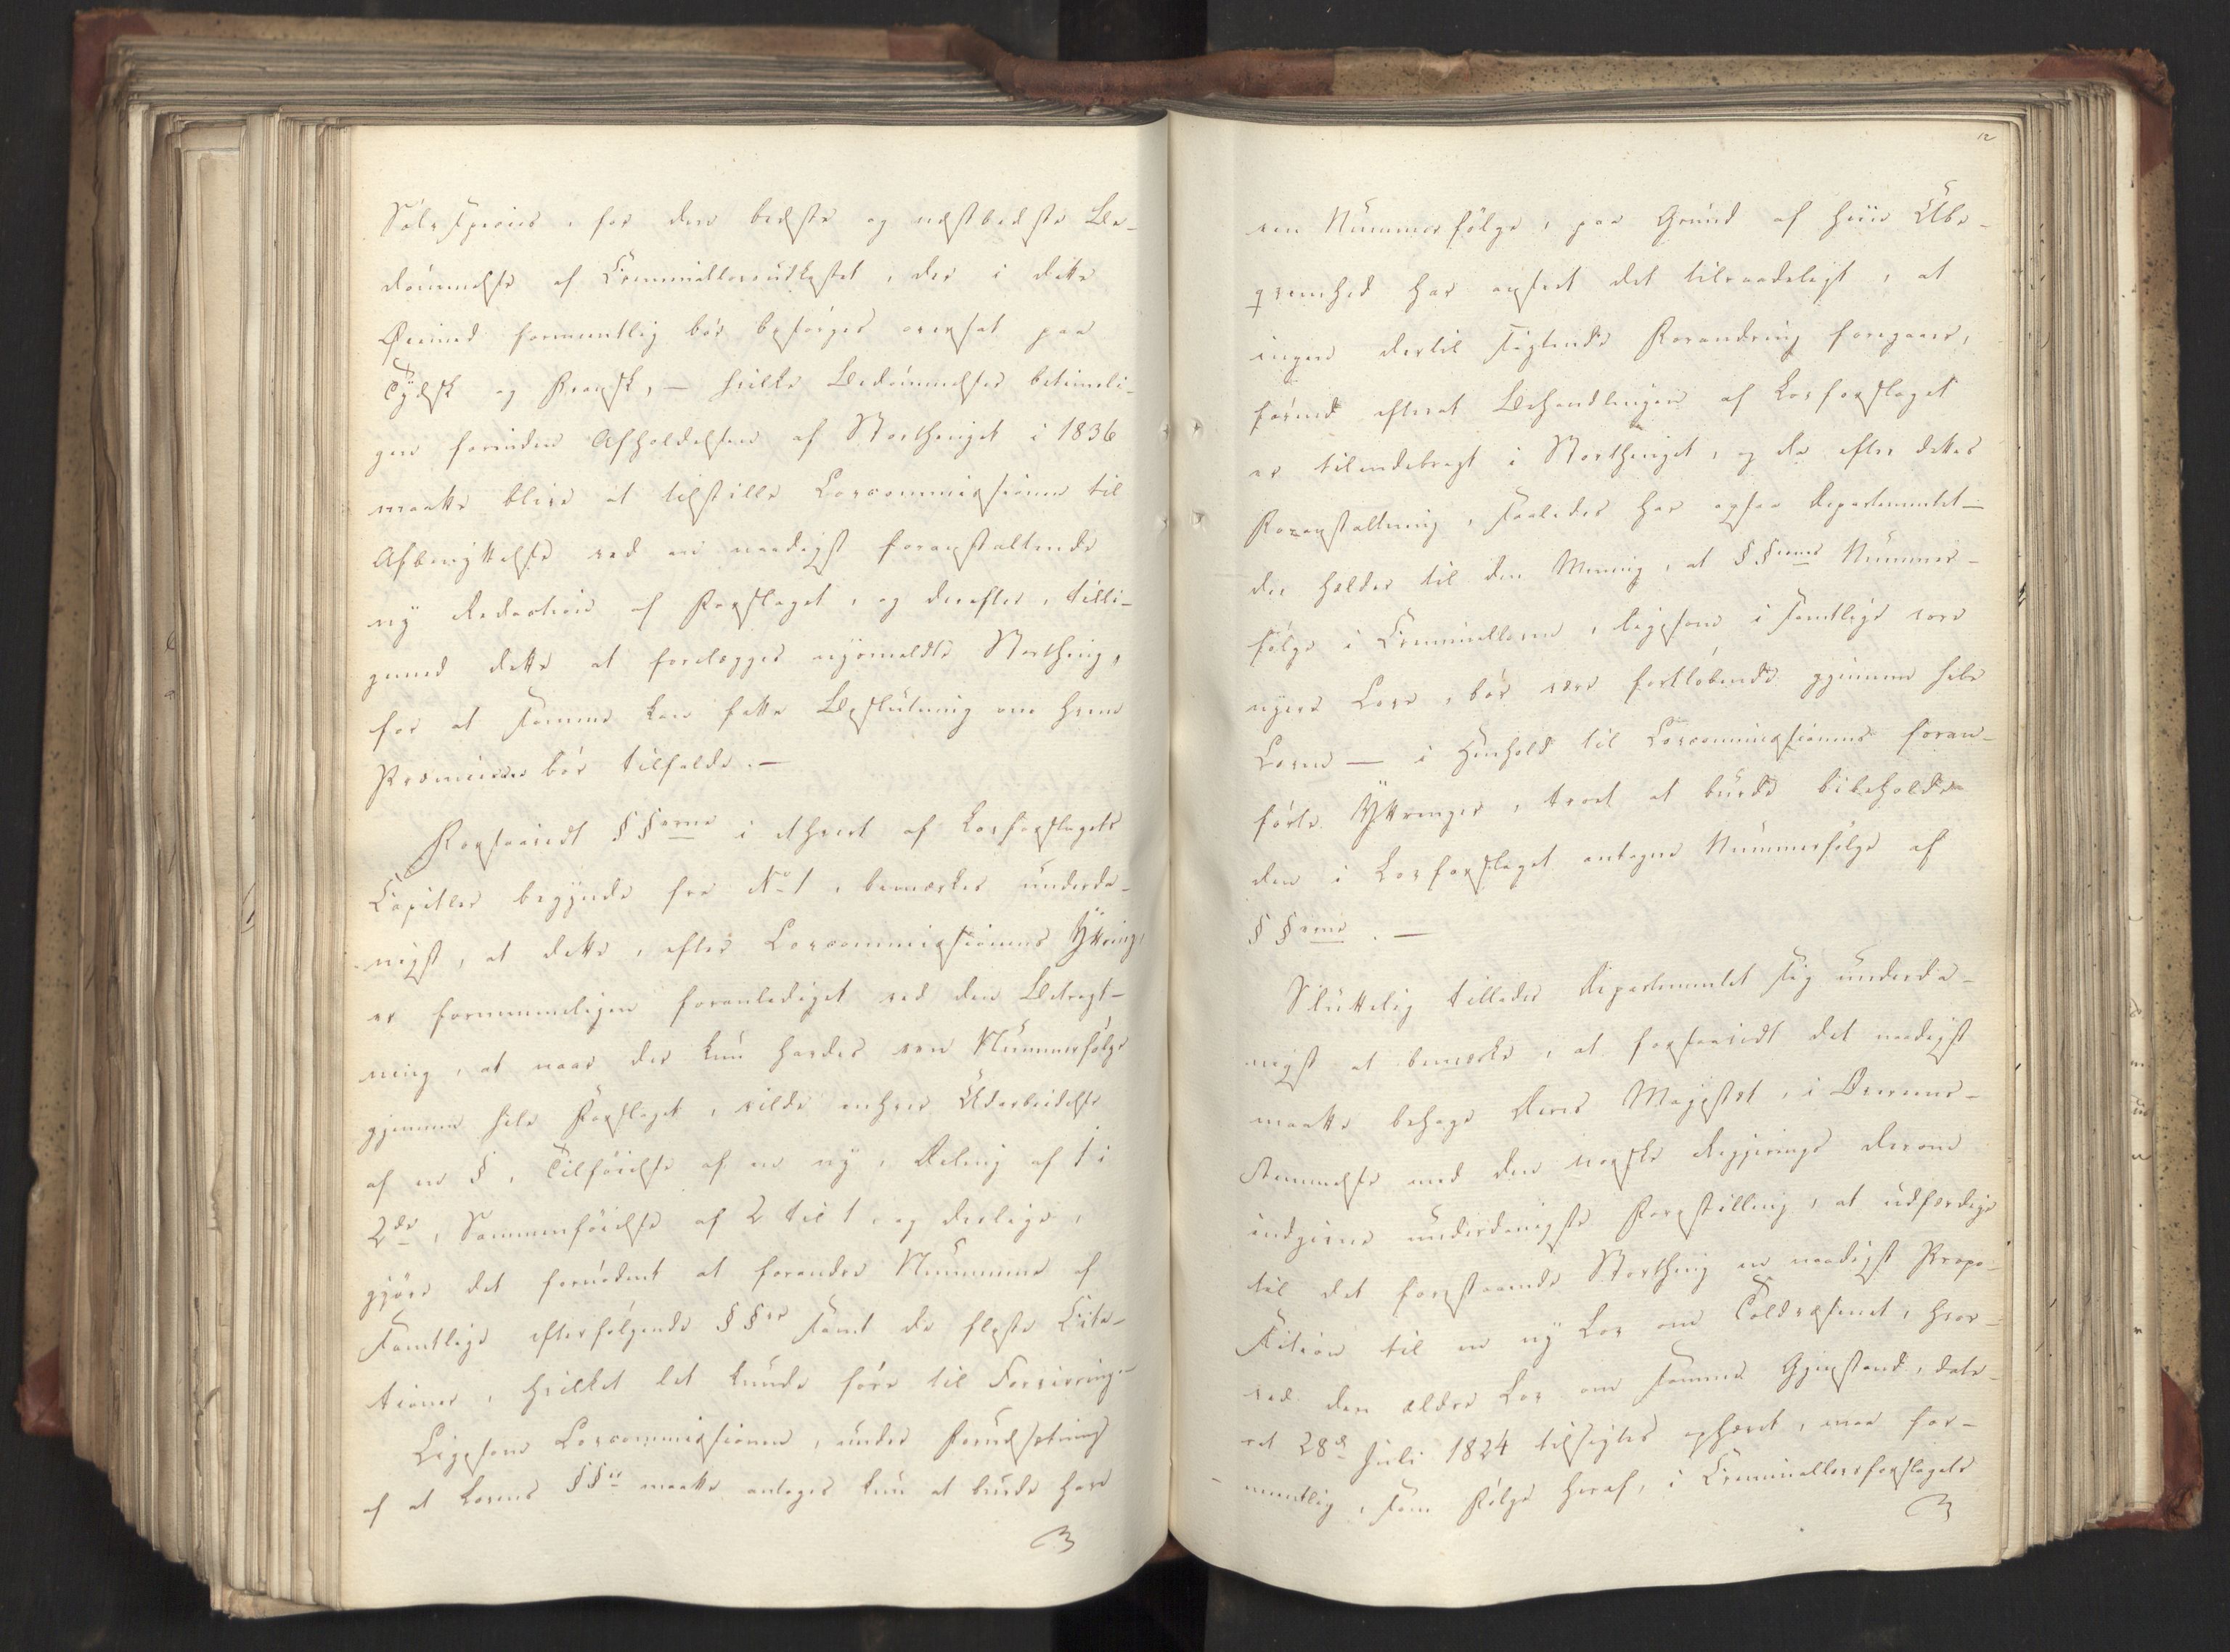 Sølv Species, for den bedste og næstbedste Be-
dømmelse af Criminallovudkastet, der i dette
Øiemed formeentlig bør besørges oversat paa
Tydsk og Fransk, — hvilke Bedømmelser betimeli-
gen forinden Afholdelsen af Storthinget i 1836
maatte blive at tilstille Lovcommissionen til
Afbenyttelse ved en naadigst foranstaltende
ny Redaction af Forslaget, og derefter, tilli-
gemed dette at forelægges nysmeldte Storthing,
for at samme kan fatte Beslutning om hvem
Præmierne bør tilfalde. —
Forsaavidt §§erne i ethvert af Lovforslagets
Capitler begynde fra No 1, bemærkes underda-
nigst, at dette, efter Lovcommissionens Yttring,
er fornemmeligen foranlediget ved den Betragt-
ning, at naar der kun havdes een Nummerfølge
gjennem hele Forslaget, vilde enhver Udarbeidelse
af en §, Tilføielse af en ny, Deling af 1 i
2de, Sammenføielse af 2 til 1, og deslige,
gjøre det fornødent at forandre Nummerne af
samtlige efterfølgende §§er samt de fleste Cita-
tioner, hvilket let kunde føre til Forvirring.
Ligesom Lovcommissionen, under Forudsætning
af at Lovens §§er maatte antages kun at burde have
3
12
een Nummerfølge, paa Grund af hiin Ube-
qvemhed har anseet det tilraadeligt, at
ingen dertil sigtende Forandring foregaaer,
førend efterat Behandlingen af Lovforslaget
er tilendebragt i Storthinget, og da efter dettes
Foranstaltning, saaledes har ogsaa Departementet —
der holder til den Mening, at §§ernes Nummer-
følge i Criminalloven, ligesom i samtlige vore
nyere Love, bør være fortløbende gjennem hele
Loven — i Henhold til Lovcommissionens foran-
førte Yttringer, troet at burde bibeholde
den i Lovforslaget antagne Nummerfølge af
§§erne. —
Sluttelig tillader Departementet sig underda-
nigst at bemærke, at forsaavidt det naadigst
maatte behage Deres Majestæt, i Overeens-
stemmelse med den norske Regjerings derom
indgivne underdanigste Forestilling, at udfærdige
til det forestaaende Storthing en naadigst Propo-
sition til en ny Lov om Toldvæsenet, hvor-
ved den ældre Lov om samme Gjenstand, date-
ret 28de Juli 1824 tilsigtes ophævet, maa for-
mentlig, som Følge heraf, i Criminallovforslagets
3